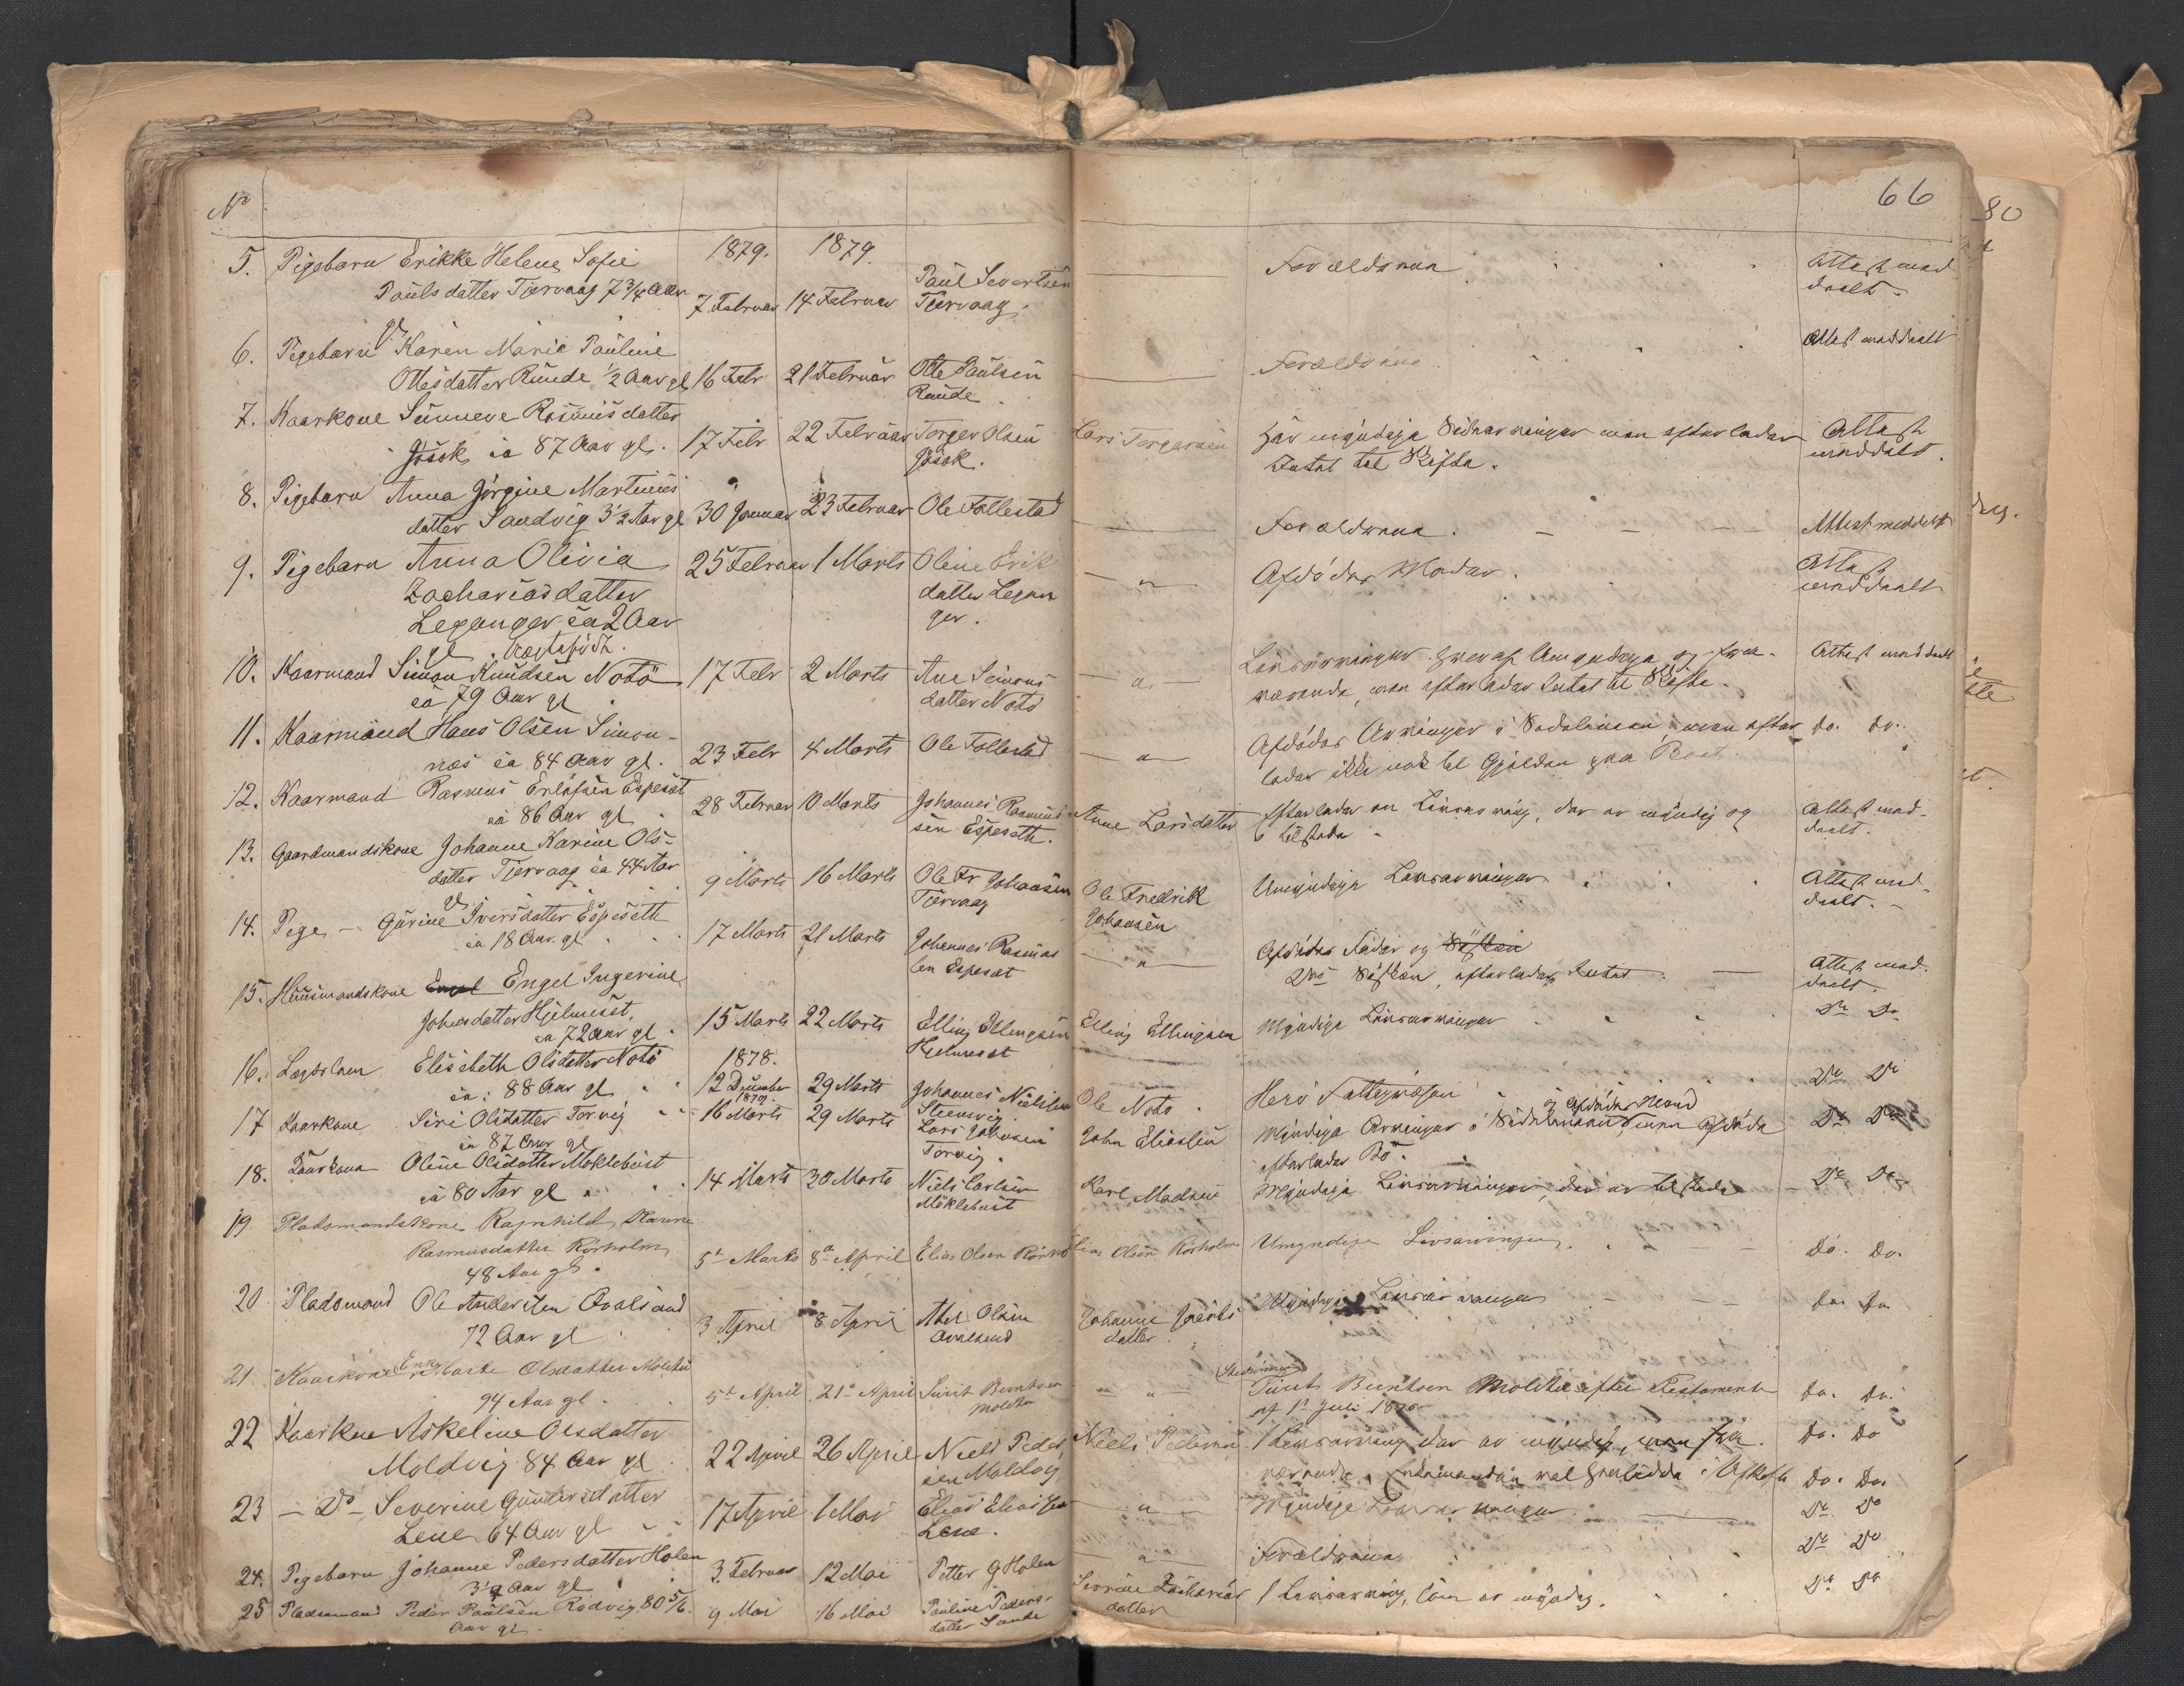 66
80
No
1879. 1879.
5. Pigebarn Erikke Helene Sofie
Pauls datter Tjervaag 7 3/4 Aar
gl
7 Februar 14 Februar Paul Severtsen
Tjervaag.
Forældrene
Attest med
deelt.
6. Pigebarn Karen Marie Pauline
Ottesdatter Runde 1/2 Aar gl 16 Febr 21 Februar Otte Paulsen
Runde.
Forældrene
Attest meddeelt
7. Kaarkone Sünneve Rasmusdatter
Jøsok ca 87 Aar gl. 17 Febr 22 Februar Torger Olsen
Jøsok.
Lars Torgersen
Har myndige Sidearvinger men efterlader
Intet til Skifte.
Attest
meddelt.
8. Pigebarn Anna Jørgine Martinus
datter Sandvig 3 1/2 Aar gl 30 Januar 23 Februar Ole Follestad
Forældrene.
Attest meddelt
9. Pigebarn Anna Olivia
Zacharias datter
Leganger ca 2 Aar
gl.
25 Februar 1 Marts Oline Erik
datter Legan
ger.
— " —
Afdødes Moder.
Attest
meddeelt
10. Kaarmand Simon Knudsen Notø
ca 79 Aar gl
17 Febr 2 Marts Ane Simons
datter Notø
— " —
Livsarvinger hveraf Umyndige og fra-
værende, men efterlader Intet til Skifte.
Attest meddeelt
11. Kaarmand Hans Olsen Simon-
næs ca 84 Aar gl. 23 Febr 4 Marts Ole Follestad
— " —
Afdødes Arvinger i Sidelinien, men efter
lader ikke nok til Gjælden
do. do.
12. Kaarmand Rasmus Erlafsen Espeset
ca 86 Aar gl.
28 Februar 10 Marts Johannes Rasmus
sen Espeseth.
Anne Larsdatter
Efterlader en Livsarving, der er myndig og
tilstede.
Attest med-
deelt.
13. Gaardmandskone Johanne Karine Ols-
datter Tjervaag ca 44 Aar
gl
9 Marts 16 Marts Ole Fr Johansen
Tjervaag
Ole Fredrik
Johansen
Umyndige Livsarvinger
Attest med-
deelt. -
14. Pige - Gurine Iversdatter Espeseth
ca 18 Aar gl.
17 Marts 21 Marts Johannes Rasmus
sen Espeset
— " —
Afdødes Fader og Søsken
Søsken, efterlader Intet.
Attest med-
deelt.
15. Huusmandskone Engel Ingerine
Johnsdatter Hjelmeset,
ca 72 Aar gl.
15 Marts 22 Marts Elling Ellingsen
Hjelmeset
Elling Ellingsen
Myndige Livsarvinger
Do Do
16. Lægdslem Elisabeth Olsdatter Notø
ca. 88 Aar gl
1878.
12 December 29 Marts Johannes Nielsen
Ole Notø
Herø Fattigvæsen
Do Do
17 Kaarkone Siri Olsdatter Torvig
ca 82 Aar gl
1879.
16 Marts 29 Marts Lars Johnsen
Torvig.
John Eliassen
og Afdødes Mand
Myndige Arvinger i Sidelinien, men Afdøde
efterlader Bo.
Do Do
18. Kaarkone Oline Olsdatter Møklebust
ca 80 Aar gl
14 Marts 30 Marts Niels Carlsen
Møklebust
Karl Madsen
Myndige Livsarvinger, der er tilstede
Do Do
19 Pladsmandskone Ragnhild Karine
Rasmusdatter Rørholm
48 Aar gl.
5te Marts 8de April Elias Olsen Rørho
Elias Olsen Rørholm
Umyndige Livsarvinger.
Do. Do.
20 Pladsmand Ole Andersen Qvalsund
72 Aar gl
3 April 8 April Abel Olsen
Qvalsund
Johanne Jacobs
datter
Myndige Livsarvinger
do. do.
21 Kaarkone Enke Olsdatter Moltu
94 Aar gl.
5te April 21de April Sivert Berntsen
Moltu
— " —
Sivert Berntsen Moltu efter Testament
af 1ste Juli
do. do.
22 Kaarkone Askeline Olsdatter
Moldvig 84 Aar gl
22 April 26 April Niels Peder
sen Moldvig
Niels Pedersen
1 Livsarving der er myndig, men fra-
værende.
do. do
do. do.
23 — Do — Severine Gunders datter
Lene 64 Aar gl
17 April 1 Mai Elias Eliassen
Lene.
— " —
Myndige Livsarvinger
Do Do
24. Pigebarn Johanne Pedersdatter Holen
3 1/2 Aar gl
3. Februar 12 Mai Petter G Holen
— " —
Forældrene
Do Do
25 Pladsmand Peder Paulsen Rødvig 80 5/6
Aar gl.
9 Mai 16 Mai Pauline Peders-
datter Sande
Severine Zacharias
datter
1 Livsarving, som er myndig.
Do Do